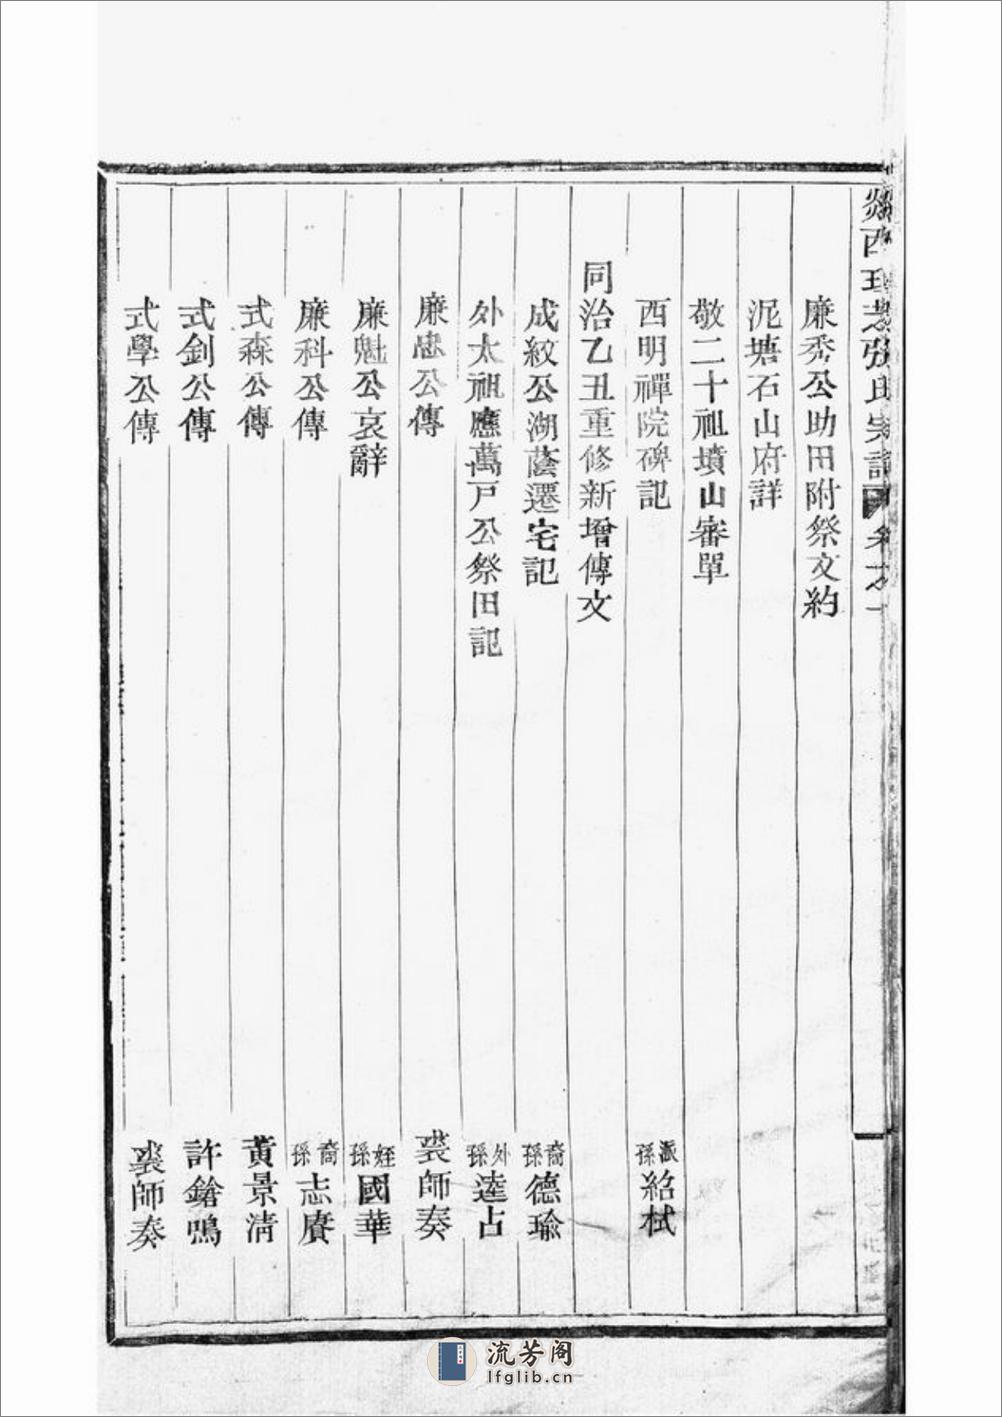 廉秀公助田附祭文約
泥塘石山府詳
敬二十祖墳山審單
西明禪院碑記 派孫紹栻
同治乙丑重修新增傳文
成紋公湖蔭遷宅記 裔孫德瑜
外太祖應萬戸公祭田記 外孫逵占
廉忠公傳 裘師奏
廉魁公哀辭 姪孫國華
廉科公傳 裔孫志賡
式森公傳 黃景淸
式釗公傳 許鎗鳴
式學公傳 裘師奏
流芳阁
lfglib.cn